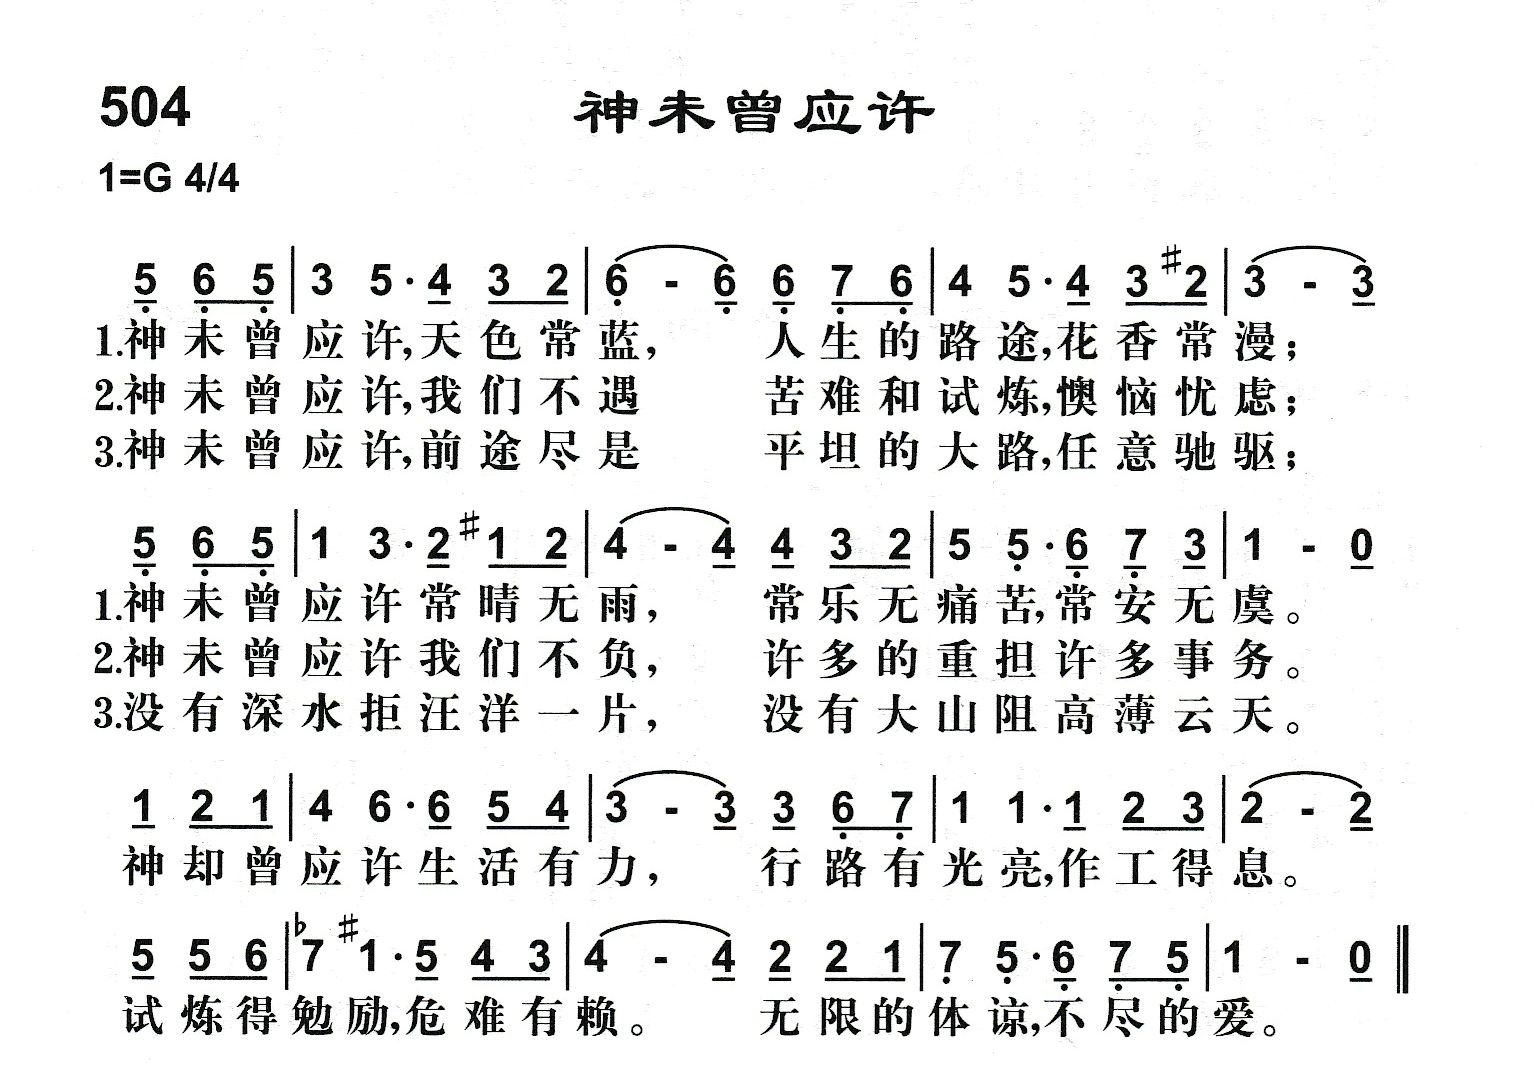 504 神未曾应许
1=G 4/4
5 6 5 | 3 5 · 4 3 2 | 6 - 6 6 7 6 | 4 5 · 4 3 #2 | 3 - 3
1.神未曾应许,天色常蓝, 人生的路途,花香常漫;
2.神未曾应许,我们不遇 苦难和试炼,懊恼忧虑;
3.神未曾应许,前途尽是 平坦的大路,任意驰驱;
5 6 5 | 1 3 · 2 #1 2 | 4 - 4 4 3 2 | 5 5 · 6 7 3 | 1 - 0
1.神未曾应许常晴无雨, 常乐无痛苦,常安无虞。
2.神未曾应许我们不负, 许多的重担许多事务。
3.没有深水拒汪洋一片, 没有大山阻高薄云天。
1 2 1 | 4 6 · 6 5 4 | 3 - 3 3 6 7 | 1 1 · 1 2 3 | 2 - 2
神却曾应许生活有力, 行路有光亮,作工得息。
5 5 6 | b7 #1 · 5 4 3 | 4 - 4 2 2 1 | 7 5 · 6 7 5 | 1 - 0
试炼得勉励,危难有赖。 无限的体谅,不尽的爱。